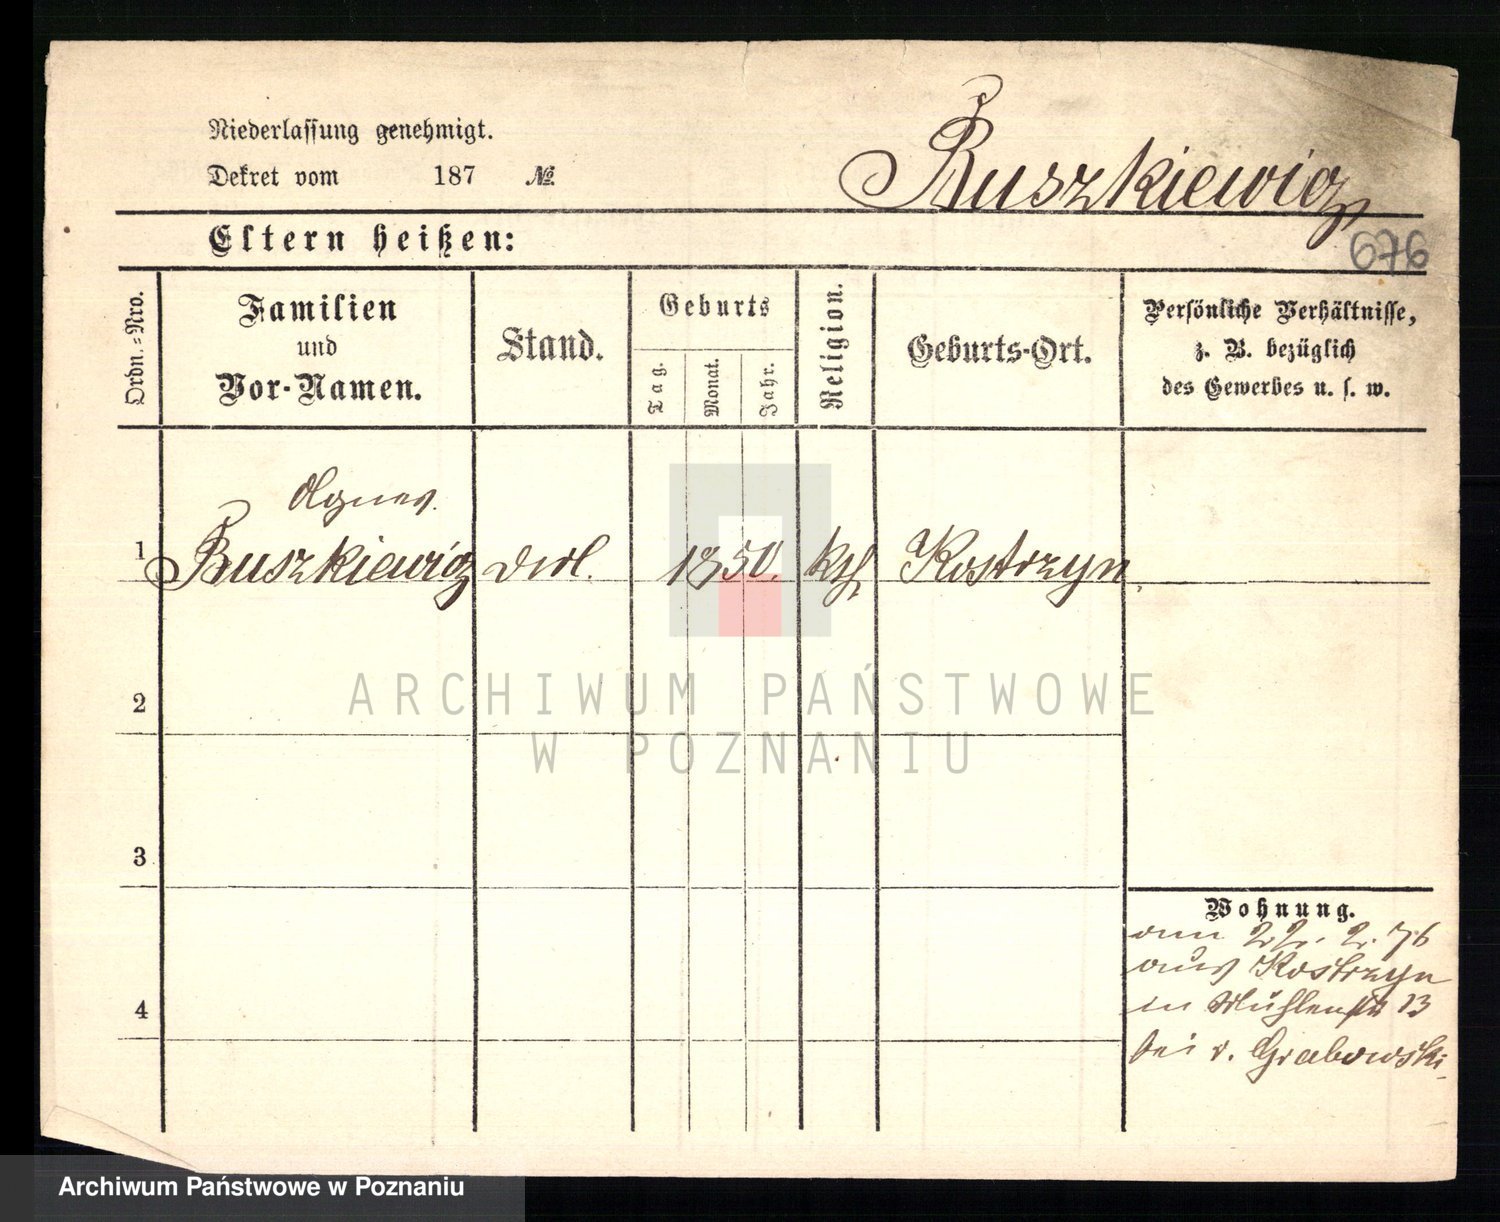 Niederlassung genehmigt.
Dekret vom 187 №
Buszkiewicz
Eltern heißen:
676
Ordn.-Nro.
Familien
und
Vor-Namen.
Stand.
Geburts
Tag.
Monat.
Jahr.
Religion.
Geburts-Ort.
Persönliche Verhältnisse,
z. B. bezüglich
des Gewerbes u. s. w.
Agnes
1 Buszkiewicz 1850. kth Kostrzyn
2
3
4
Wohnung.
am 22. 2. 76
aus Kostrzyn
in Mühlenstr 13
bei v. Grabowski
ARCHIWUM PAŃSTWOWE
W POZNANIU
Archiwum Państwowe w Poznaniu